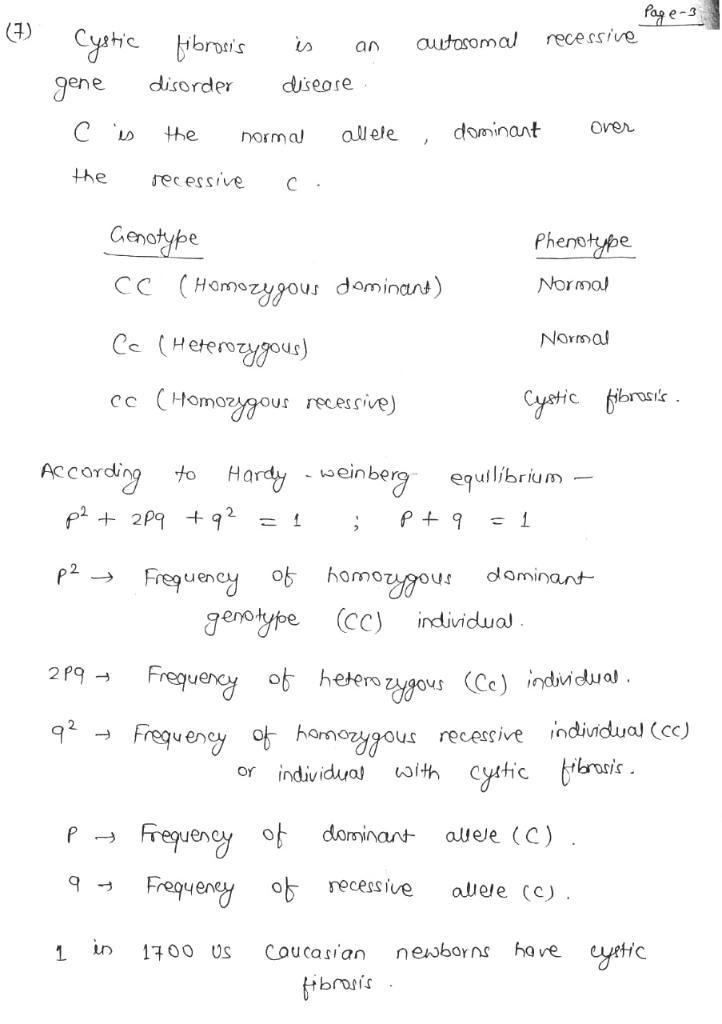 Page-3
(7) Cystic fibrosis is an autosomal recessive
gene disorder disease.
C is the normal allele, dominant over
the recessive c.
Genotype Phenotype
CC (Homozygous dominant) Normal
Cc (Heterozygous) Normal
cc (Homozygous recessive) Cystic fibrosis.
According to Hardy-weinberg equilibrium —
p² + 2pq + q² = 1 ; p + q = 1
p² → Frequency of homozygous dominant
genotype (CC) individual.
2pq → Frequency of heterozygous (Cc) individual.
q² → Frequency of homozygous recessive individual (cc)
or individual with cystic fibrosis.
p → Frequency of dominant allele (C).
q → Frequency of recessive allele (c).
1 in 1700 US Caucasian newborns have cystic
fibrosis.